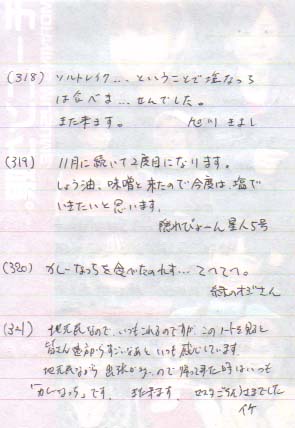 (318) ソルトレイク... ということで塩なっち
は食べま...せんでした。
また来ます。 旭川 きよし
(319) 11月に続いて2度目になります。
しょう油、味噌と来たので今度は、塩で
いきたいと思います。
隠れぴょーん星人5号
(320) カレーなっちを食べたのれす...てへてへ。
緑のオジさん
(321) 地元民なので、いつもこれるのですが、このノートを見ると
皆さん遠部からすごいなあといつも感じています。
地元民ながら 出張が ので帰ってきた時はいつも
「カレーなっち」です。 また来ます。 ごちそうさまでした
イケ